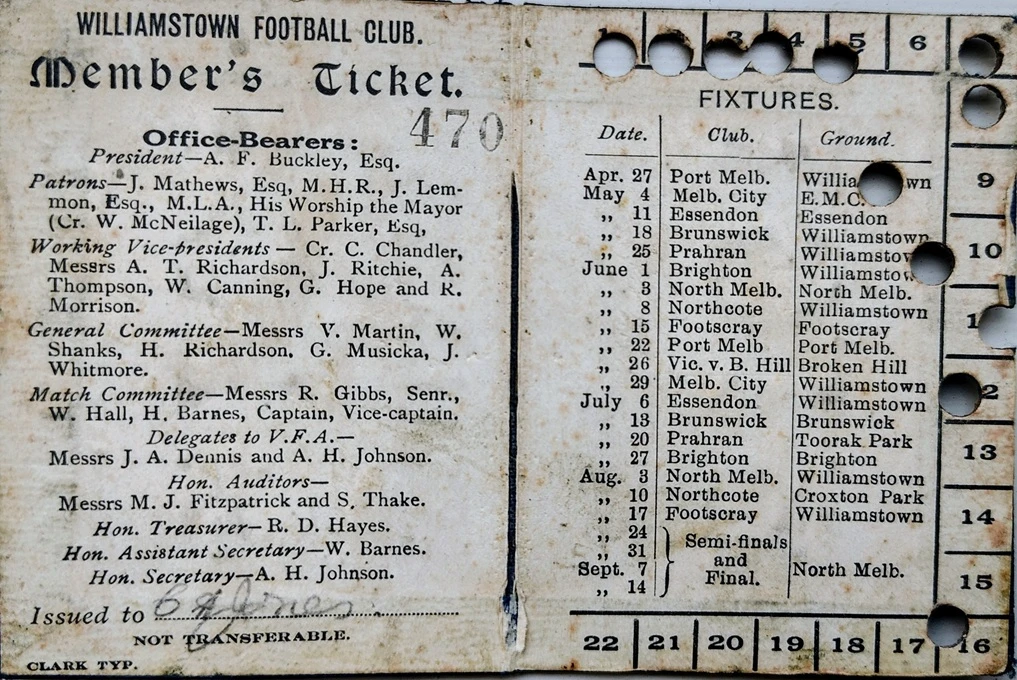 WILLIAMSTOWN FOOTBALL CLUB.
Member's Ticket.
470
Office-Bearers:
President—A. F. Buckley, Esq.
Patrons—J. Mathews, Esq, M.H.R., J. Lem-
mon, Esq., M.L.A., His Worship the Mayor
(Cr. W. McNeilage), T. L. Parker, Esq,
Working Vice-presidents — Cr. C. Chandler,
Messrs A. T. Richardson, J. Ritchie, A.
Thompson, W. Canning, G. Hope and R.
Morrison.
General Committee—Messrs V. Martin, W.
Shanks, H. Richardson. G. Musicka, J.
Whitmore.
Match Committee—Messrs R. Gibbs, Senr.,
W. Hall, H. Barnes, Captain, Vice-captain.
Delegates to V.F.A.—
Messrs J. A. Dennis and A. H. Johnson.
Hon. Auditors—
Messrs M. J. Fitzpatrick and S. Thake.
Hon. Treasurer—R. D. Hayes.
Hon. Assistant Secretary—W. Barnes.
Hon. Secretary—A. H. Johnson.
Issued to
NOT TRANSFERABLE.
CLARK TYP.
3 4 5 6
FIXTURES.
Date. Club. Ground.
Apr. 27 Port Melb.
May 4 Melb. City E.M.C.
„ 11 Essendon Essendon
„ 18 Brunswick Williamstown
„ 25 Prahran
June 1 Brighton
„ 3 North Melb. North Melb.
„ 8 Northcote Williamstown
„ 15 Footscray Footscray
„ 22 Port Melb Port Melb.
„ 26 Vic. v. B. Hill Broken Hill
„ 29 Melb. City Williamstown
July 6 Essendon Williamstown
„ 13 Brunswick Brunswick
„ 20 Prahran Toorak Park
„ 27 Brighton Brighton
Aug. 3 North Melb. Williamstown
„ 10 Northcote Croxton Park
„ 17 Footscray Williamstown
„ 24
„ 31
Sept. 7
„ 14
Semi-finals
and
Final.
North Melb.
9
10
13
14
15
22 21 20 19 18 17 16